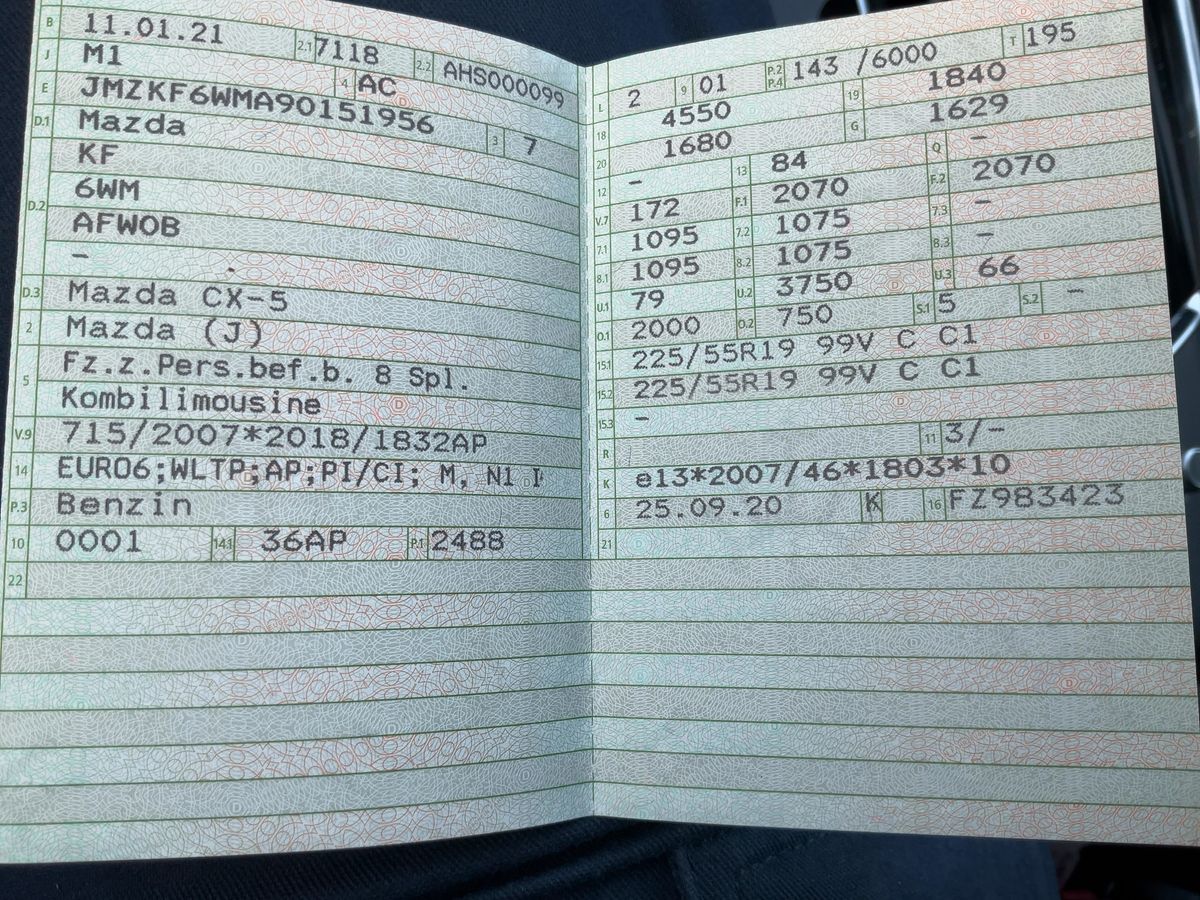 B 11.01.21 2.1 7118 2.2 AHS000099
J M1 4 AC
E JMZKF6WMA90151956 3 7
D.1 Mazda
D.2 KF
6WM
AFWOB
-
D.3 Mazda CX-5
2 Mazda (J)
5 Fz.z.Pers.bef.b. 8 Spl.
Kombilimousine
V.9 715/2007*2018/1832AP
14 EURO6;WLTP;AP;PI/CI; M, N1 I
P.3 Benzin
10 0001 14.1 36AP P.1 2488
22
L 2 9 01 P.2 P.4 143 /6000 T 195
18 4550 19 1840
20 1680 G 1629
12 - 13 84 Q -
V.7 172 F.1 2070 F.2 2070
7.1 1095 7.2 1075 7.3 -
8.1 1095 8.2 1075 8.3 -
U.1 79 U.2 3750 U.3 66
O.1 2000 O.2 750 S.1 5 S.2 -
15.1 225/55R19 99V C C1
15.2 225/55R19 99V C C1
15.3 -
R 11 3/-
K e13*2007/46*1803*10
6 25.09.20 K 16 FZ983423
21